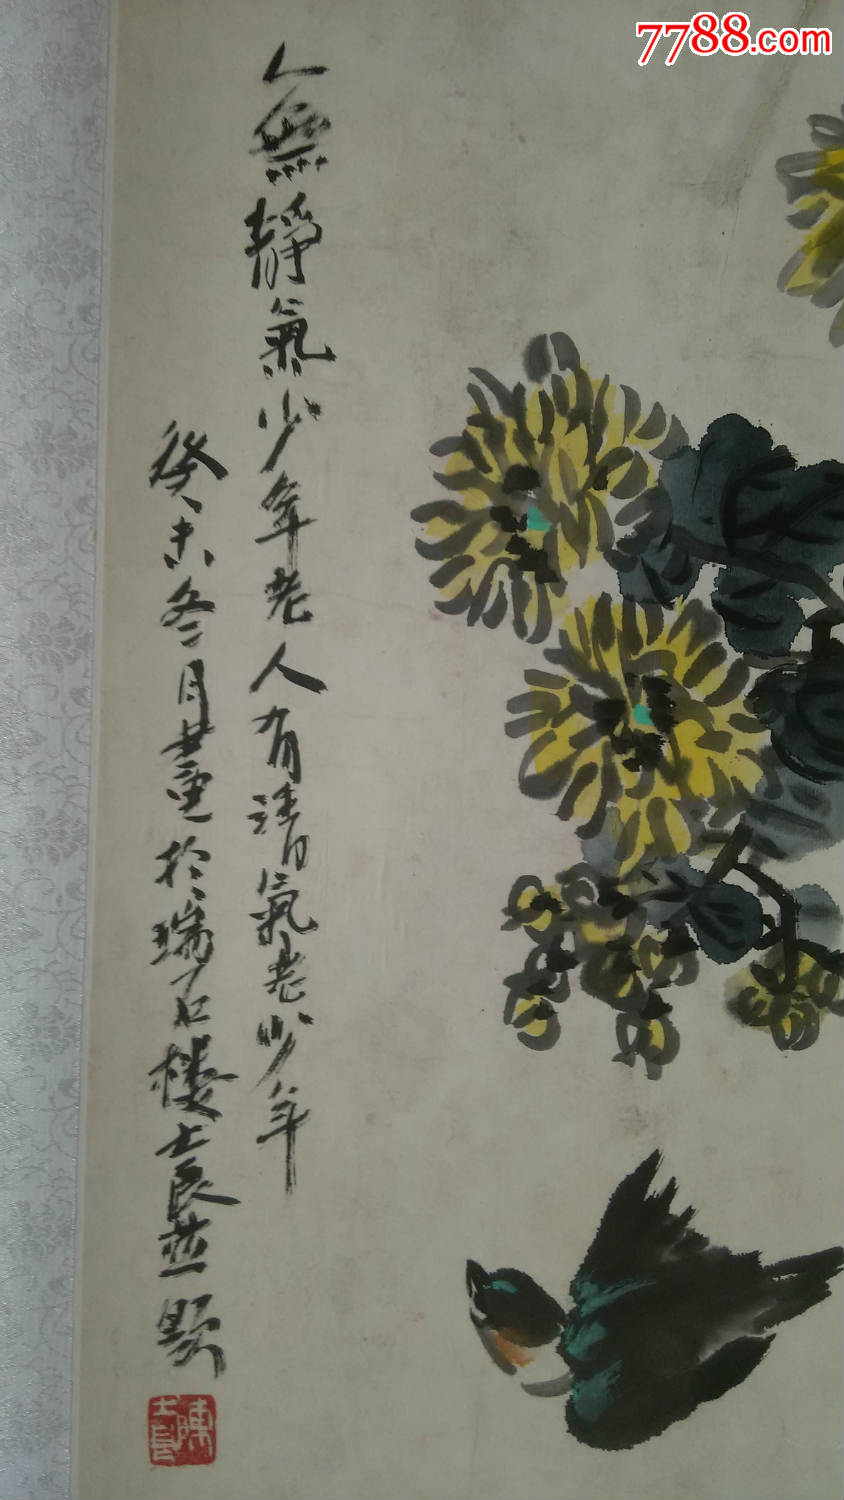 7788.com
人無靜氣少年老人有清氣老少年
癸未冬月畫於瑞石樓士良並題
陳士良